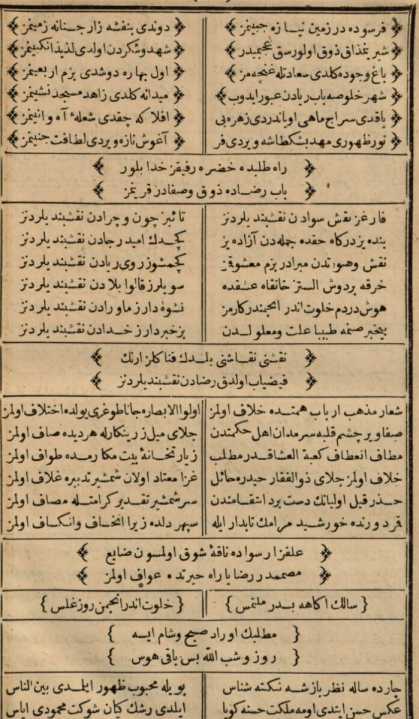 فرسوده در زمین نیازه جبینمز دوندی بنفشه زار جنانه زمینمز
شیر یتمذاق ذوق اولورسق عجمیدر شهد و شکردن اولدی لذیذ انکبینمز
باغ وجوده کلدی سعادتله غنچه‌مز اول بهاره دوشدی بزم اربعینمز
شهر خلوصه باب ریادن عبور ایدوب میدانه کلدی زاهد مسجد نشینمز
یاقدی سراج ماهی اویاندردی زهره‌یی افلاکه چقدی شعلهٔ آه و انینمز
نور ظهوری مهد بشکطاشه ویردی فر آغوش نازه ویردی لطافت جنینمز
راه طلبده خضره رفیقز خدا بلور
باب رضاده ذوق وصفادر قرینمز
فارغز نقش سوادن نقشبند یلردنز تائبز چون و چرادن نقشبند یلردنز
بنده یز درکاه حقده جمله‌دن آزاده یز کچدك امید رجادن نقشبند یلردنز
نقش وهوتدن مبرادر بزم معشوقمز کچمشوز روی ریادن نقشبند یلردنز
خرقه بردوش الستز خانقاه عشقده سویلرز قالوا بلادن نقشبند یلردنز
هوش دردم خلوت اندر انجمندر کارمز نشوه دارز ماورادن نقشبند یلردنز
بیخبر صنمه طبیبا علت و معلولدن پرخبردارز خدادن نقشبند یلردنز
نقشنی نقاشنی بلدك فناکلز ارتك
فیضیاب اولدق رضادن نقشبندیلردنز
شعار مذهب ارباب همتده خلاف اولمز اولوا الابصاره جانا طوغری یولده اختلاف اولمز
صفا ویر چشم قلبه سرمه‌دان اهل حکمتدن جلای میل زرینکارله هردیده صاف اولمز
مطاف انعطاف کعبة العشاقدر مطلب زیارتخانهٔ بیت مکارمده طواف اولمز
خلاف اولمز جلای ذوالفقار حیدره حائل غزا معتاد اولان شمشیر تدبیره غلاف اولمز
حذر قیل اولیانك دست برد انتقامندن سر شمشیر تقدیر کرامتله مصاف اولمز
قرد ورنده خورشید مرامك تابدار ایله سپهر دلده زیرا انخساف وانکساف اولمز
علفزار سواده ناقهٔ شوق اولمسون ضایع
مصممدر رضایا راه حیرتده عواف اولمز
سالك اکاهه بدر ملتمس خلوت اندر انجمن روز غلس
مطلبك اوراد صبح وشام ایسه
روز وشب الله بس باقی هوس
چارده ساله نظر باز شه نکته شناس بویله محبوب ظهور ایلمدی بین الناس
عکس حسن ایتدی اومه ملکت حسنه کویا ایلدی رشك کیان شوکت محمودی ایاس